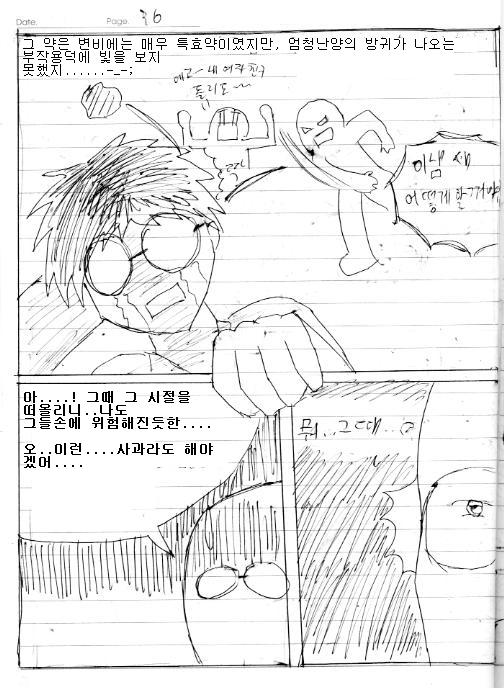 Date.
Page. 36
그 약은 변비에는 매우 특효약이였지만, 엄청난양의 방귀가 나오는
부작용덕에 빛을 보지
못했지......-_-;
애고~ 내 여자친구
돌리도~~
이냄새
어떻게 할꺼야
아....! 그때 그 시절을
떠올리니..나도
그들손에 위험해진듯한....
오..이런....사과라도 해야
겠어....
뭐...그때...